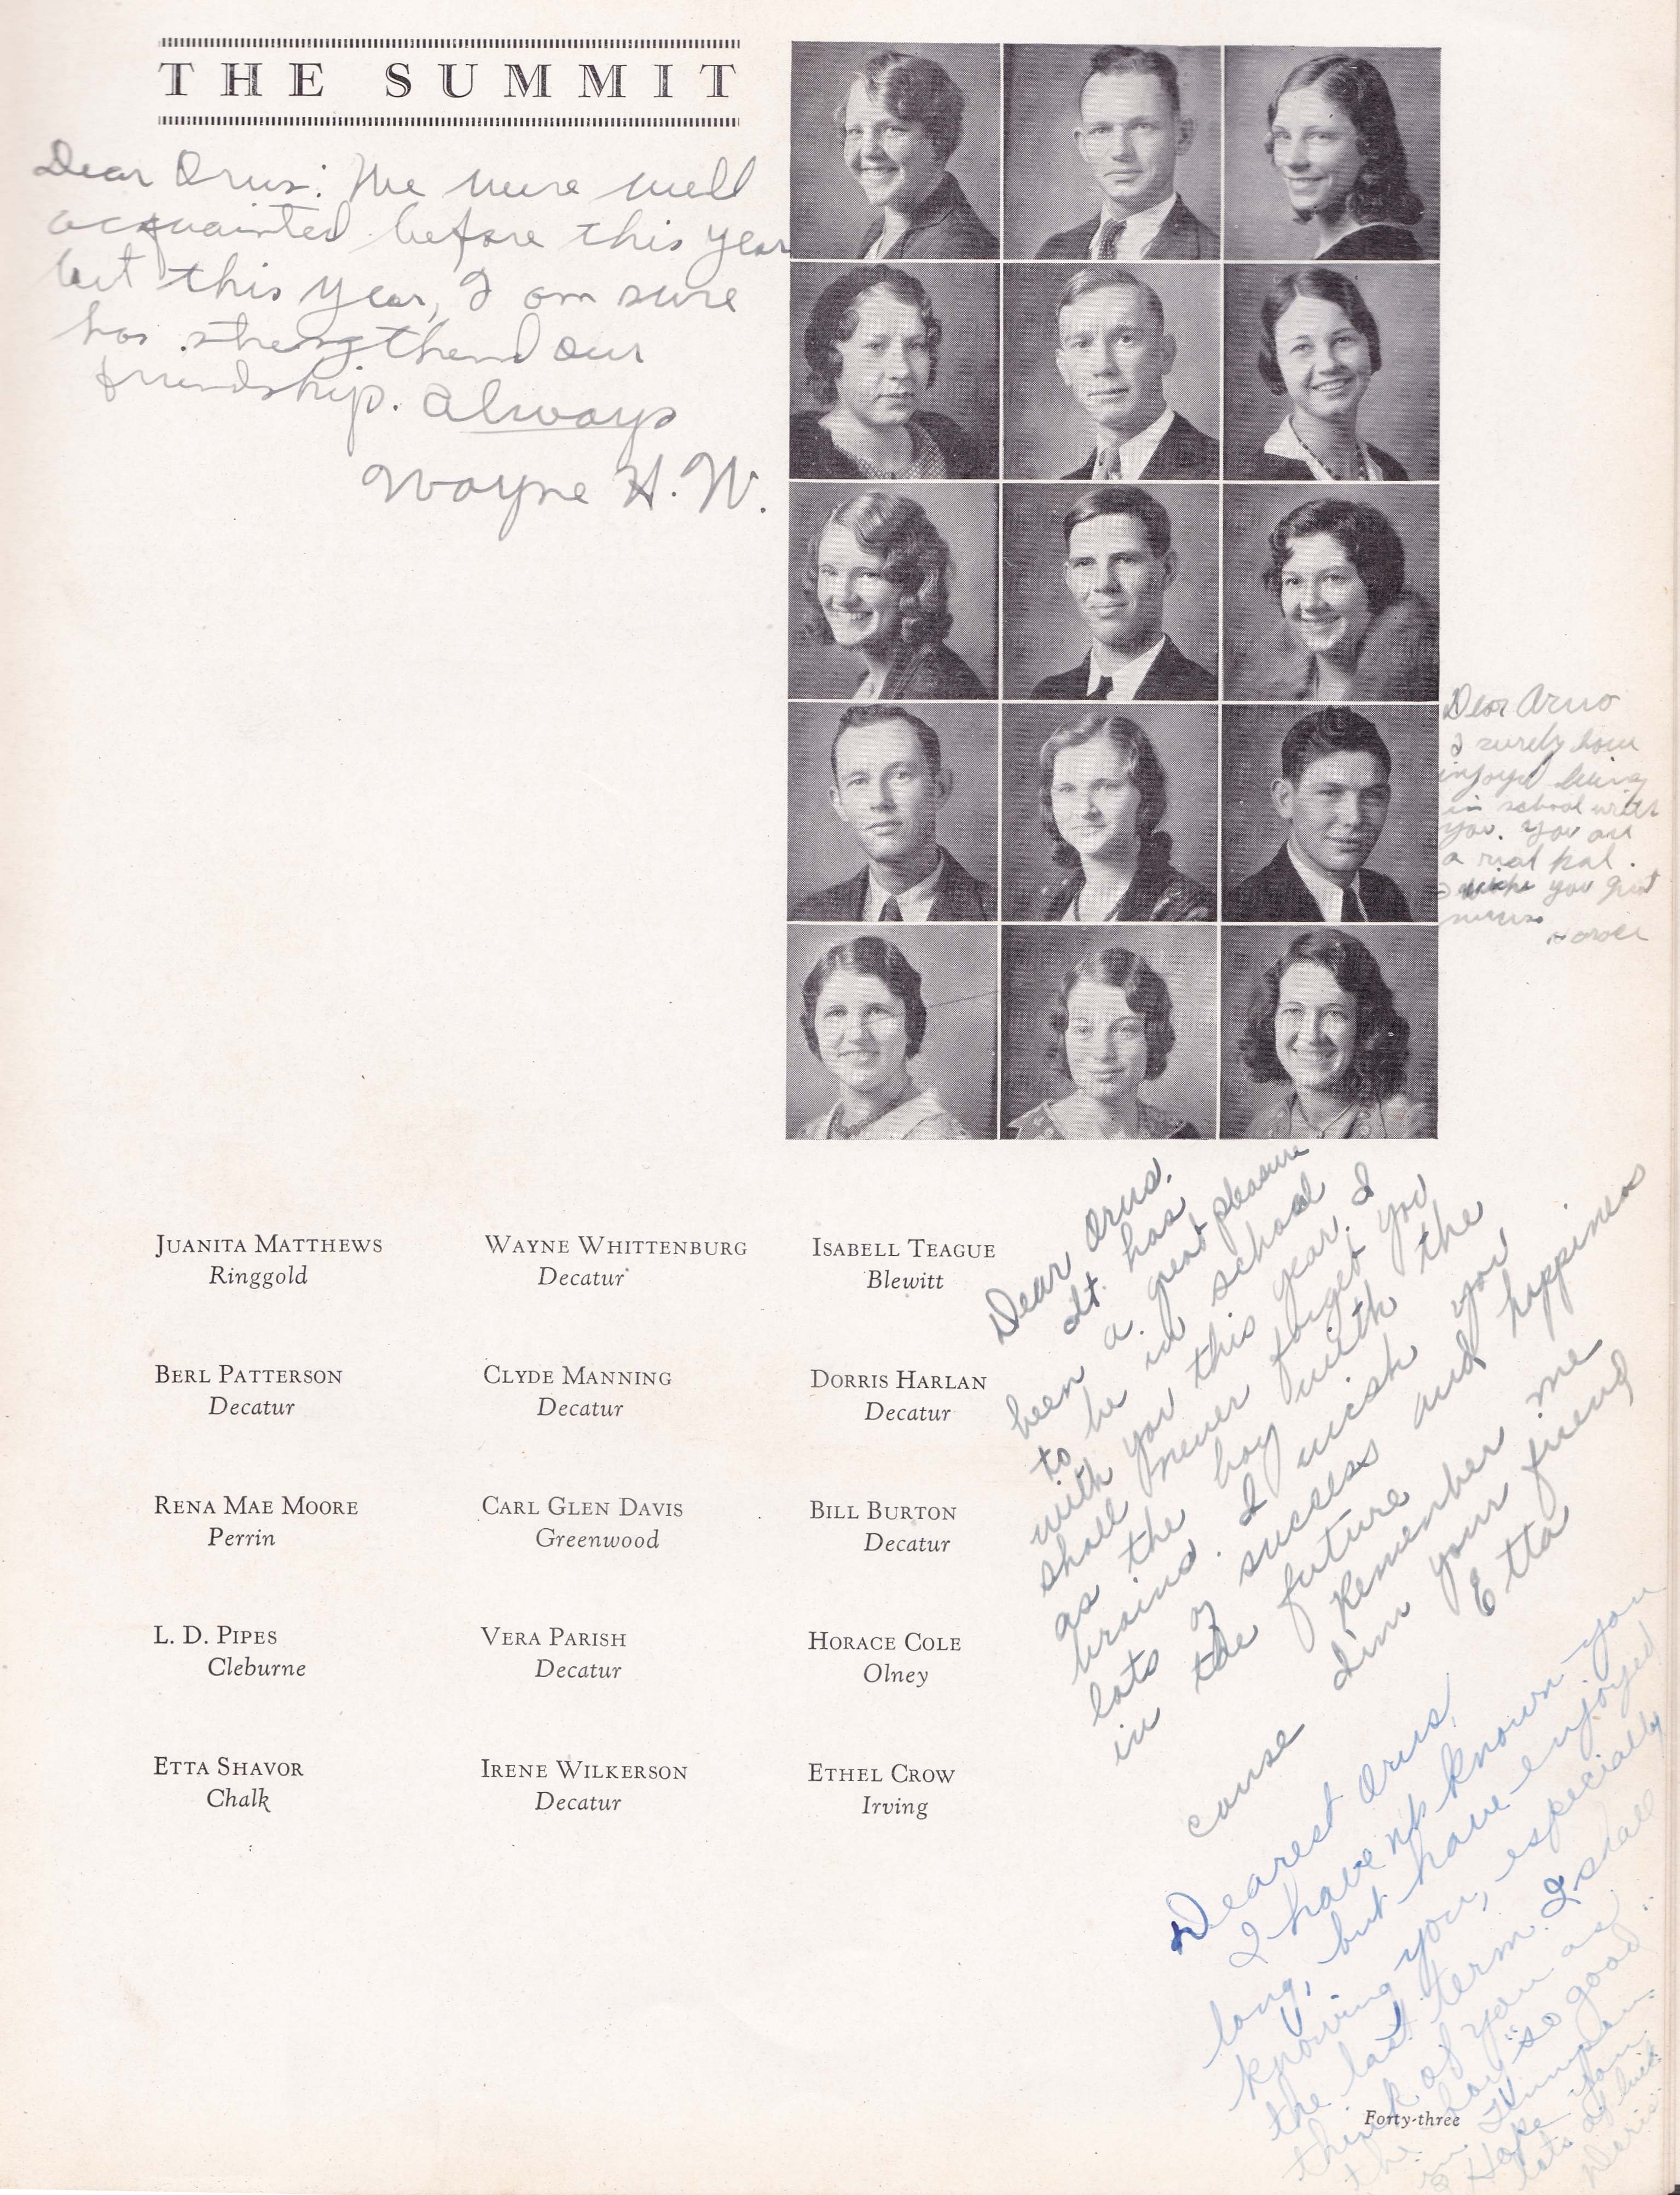 THE SUMMIT
Dear Orus: We were well
acquainted before this year
but this year, I am sure
has strengthend our
friendship. Always
Wayne H. W.
Dear Orus
I surely have
enjoyed being
in school with
you. You are
a real pal.
I wish you great
success
Horace
JUANITA MATTHEWS
Ringgold
WAYNE WHITTENBURG
Decatur
ISABELL TEAGUE
Blewitt
BERL PATTERSON
Decatur
CLYDE MANNING
Decatur
DORRIS HARLAN
Decatur
RENA MAE MOORE
Perrin
CARL GLEN DAVIS
Greenwood
BILL BURTON
Decatur
L. D. PIPES
Cleburne
VERA PARISH
Decatur
HORACE COLE
Olney
ETTA SHAVOR
Chalk
IRENE WILKERSON
Decatur
ETHEL CROW
Irving
Dear Orus.
It has
been a great pleasure
to be in school
with you this year. I
shall never forget you
as the boy with the
brains. I wish you
lots of success and happiness
in the future
cause Remember me
I'm your friend
Etta
Dearest Orus,
I have not known you
long, but have enjoyed
knowing you, especially
the last term. I shall
think of you as
the boy "so good
in
Hope you
lots of luck
Forty-three